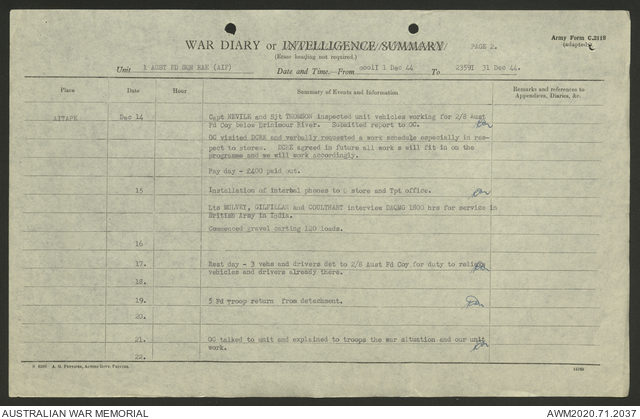 Army Form C.2118
(adapted)
WAR DIARY or INTELLIGENCE SUMMARY
PAGE 2.
(Erase heading not required.)
Unit 1 AUST FD GEN RAE (AIF)
Date and Time.—From 0001I 1 Dec 44 To 2359I 31 Dec 44.
Place Date Hour Summary of Events and Information Remarks and references to
Appendices, Diaries, &c.
AITAPE Dec 14 Capt NEVILE and Sjt THOMSON inspected unit vehicles working for 2/8 Aust
Fd Coy below Driniumor River. Submitted report to OC.
OC visited DCRE and verbally requested a work schedule especially in res-
pect to stores. DCRE agreed in future all work s will fit in on the
programme and we will work accordingly.
Pay day - £400 paid out.
15 Installation of internal phones to store and Tpt office.
Lts MULVEY, GILFILLAN and COULTHART interview DAQMG 1800 hrs for service in
British Army in India.
Commenced gravel carting 120 loads.
16
17. Rest day - 3 vehs and drivers det to 2/8 Aust Fd Coy for duty to relieve
vehicles and drivers already there.
18.
19. 5 Fd Troop return from detachment.
20.
21. OC talked to unit and explained to troops the war situation and our unit
work.
22.
AUSTRALIAN WAR MEMORIAL
AWM2020.71.2037